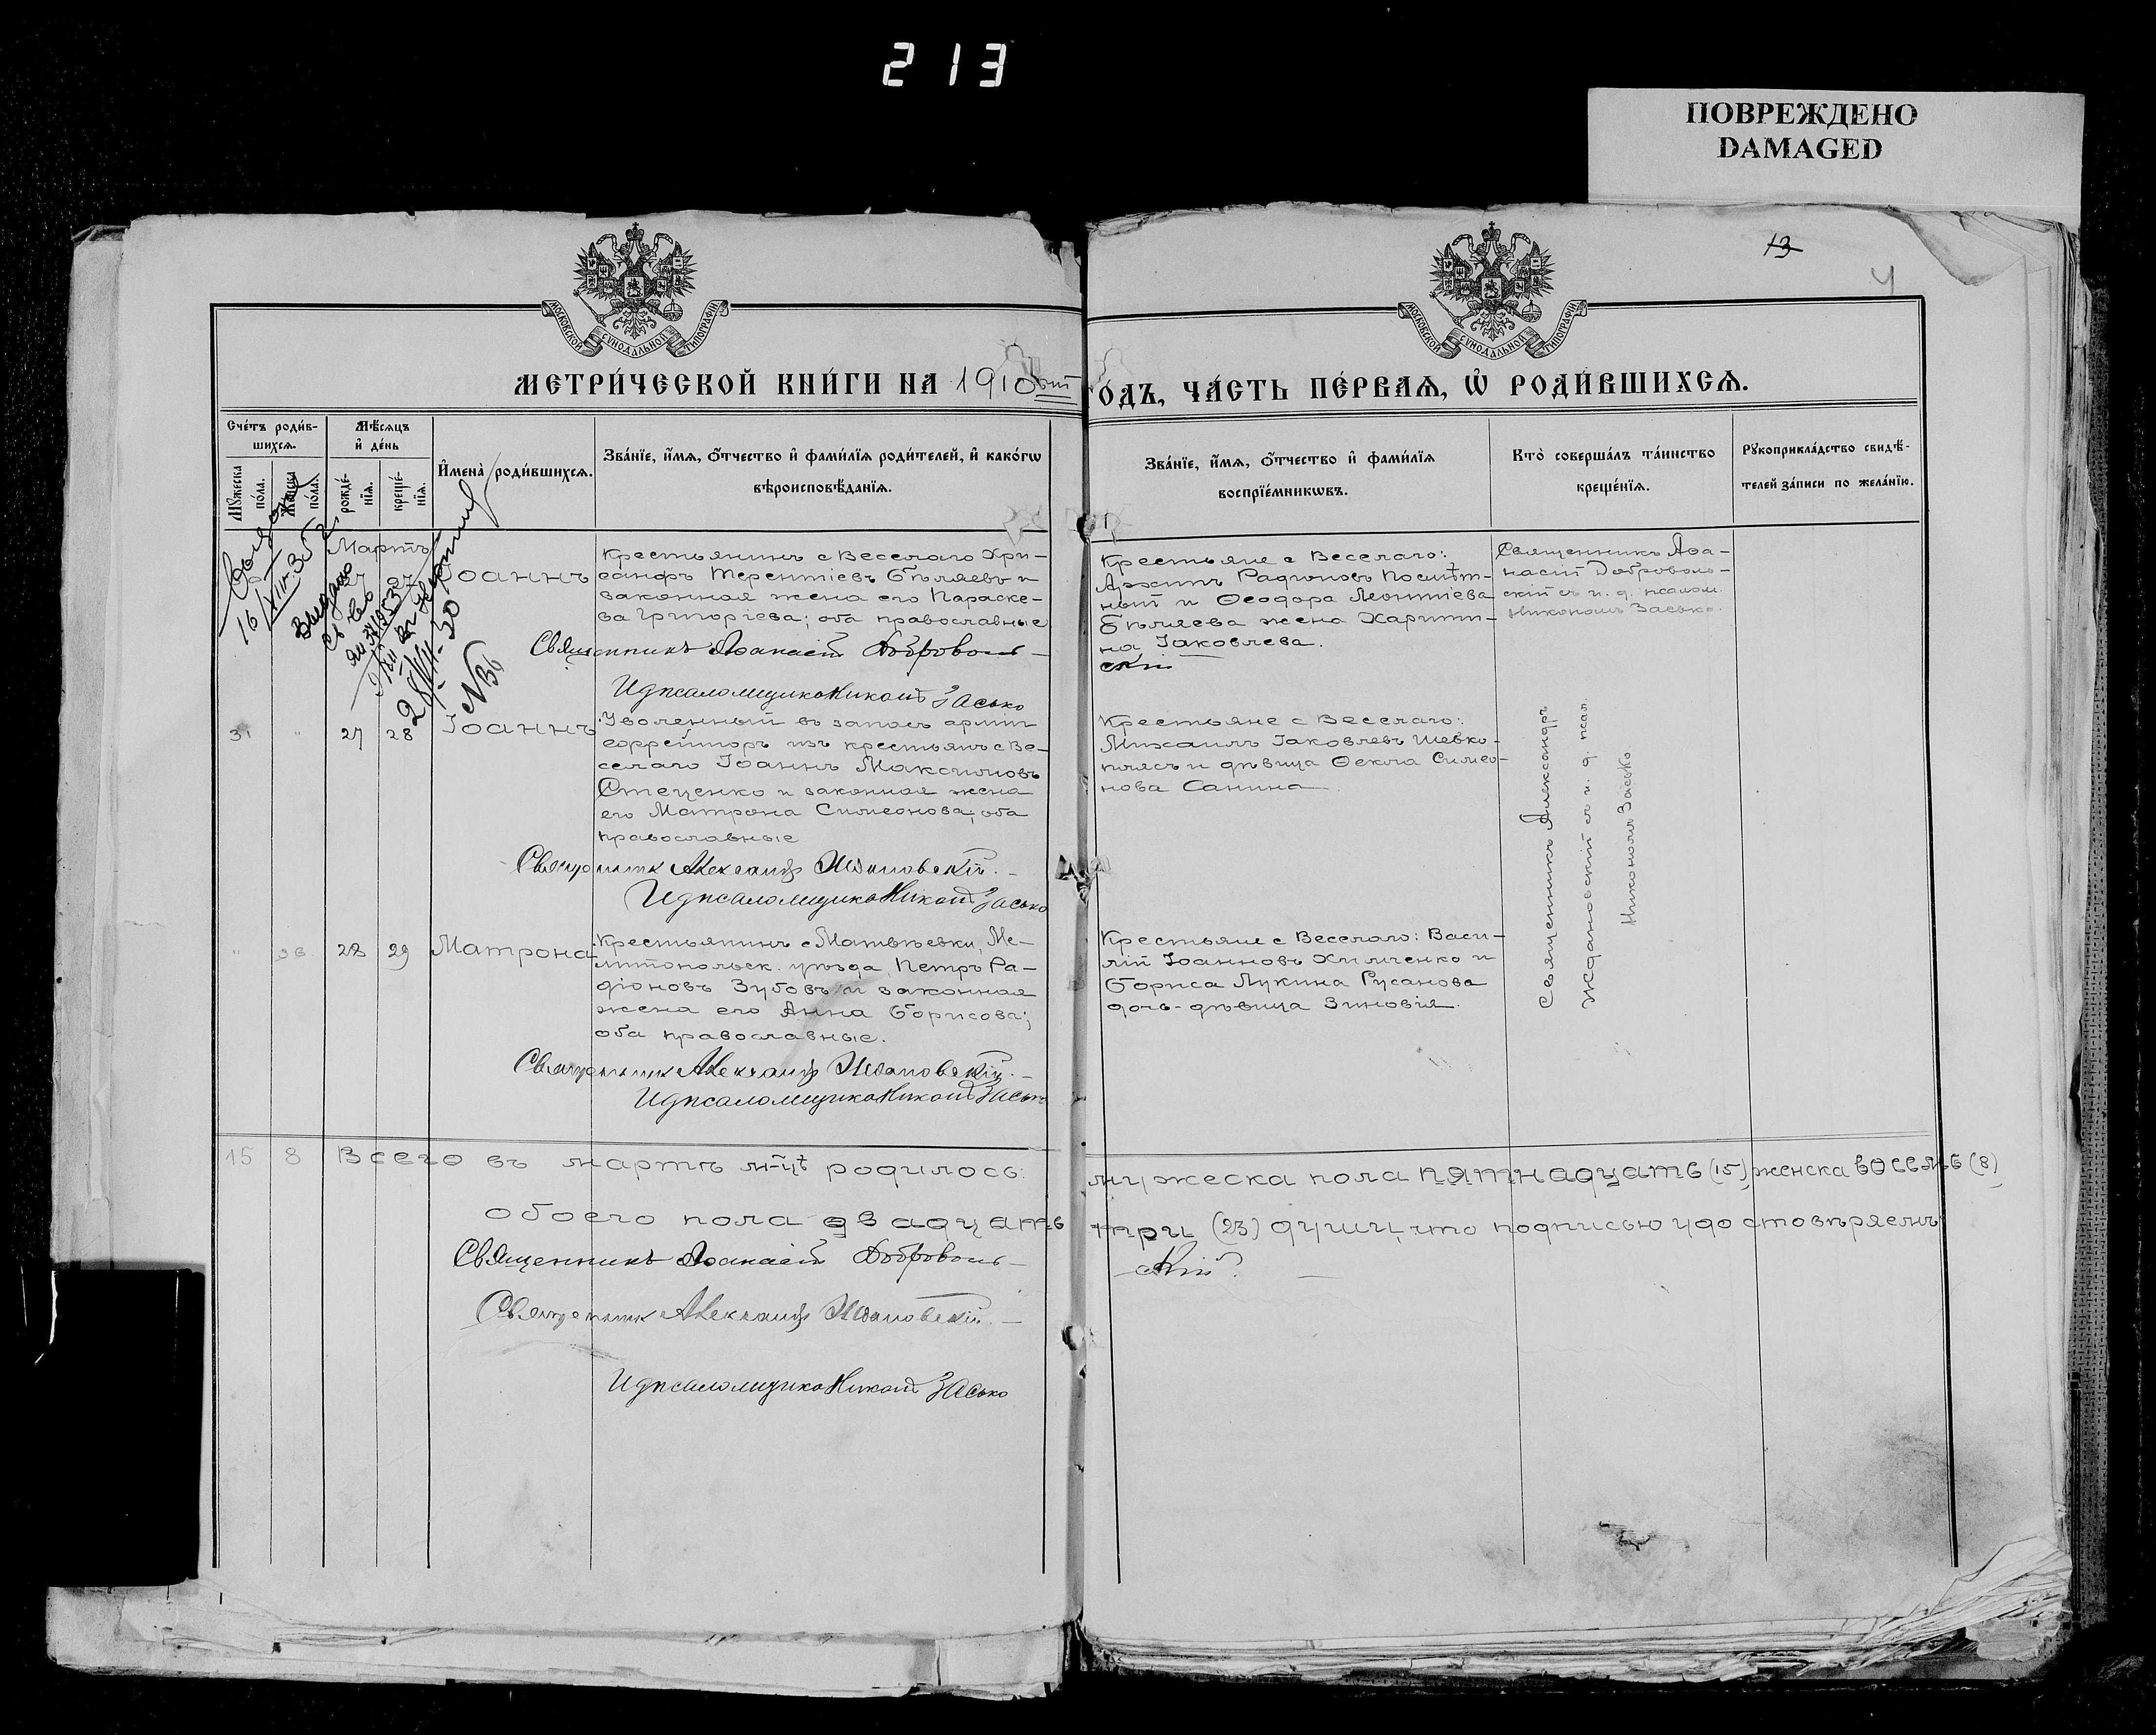 213
ПОВРЕЖДЕНО
DAMAGED
13
МОСКОВСКОЙ СУНОДАЛЬНОЙ ТИПОГРАФІИ
МОСКОВСКОЙ СУНОДАЛЬНОЙ ТИПОГРАФІИ
МЕТРИ́ЧЕСКОЙ КНИ́ГИ НА 1910ый ГО́ДЪ, ЧА́СТЬ ПЕ́РВАЯ, Ѡ҆ РОДИ́ВШИХСЯ.
Сче́тъ роди́в-
шихся.
Мꙋ́жеска по́ла.
Же́нска по́ла.
Мѣ́сяцъ
и҆ де́нь
рожде́-
нїя.
креще́-
нїя.
И҆мена̀ роди́вшихся.
Зва́нїе, и҆́мя, ѻ҆́тчество и҆ фами́лїя роди́телей, и҆ како́гѡ
вѣроисповѣ́данїя.
Зва́нїе, и҆́мя, ѻ҆́тчество и҆ фами́лїя
воспрїе́мникѡвъ.
Кто̀ соверша́лъ та́инство
креще́нїя.
Рꙋкоприкла́дство свидѣ́-
телей за́писи по жела́нїю.
Мартъ
Іоаннъ
Крестьянинъ с Веселаго Хри-
санфъ Терентіевъ Бѣляевъ и
законная жена его Параске-
ва Григоріева; оба православные
Священникъ Аѳанасій Добровольскій
И д псаломщика Никонъ Засько
Крестьяне с Веселаго:
ный и Ѳеодора Леонтіева
Бѣляева жена Харити-
на Іаковлева.
Священникъ Аѳа-
насій Доброволь-
скій съ и. д. псалом.
Никономъ Засько.
Выдано
28/VII-30
31 " 27 28 Іоаннъ
Уволенный въ запасъ арміи
ефрейторъ изъ крестьянъ с Ве-
селаго Іоаннъ Максимовъ
Стеценко и законная жена
его Матрона Симеонова; оба
православные
Священник Александр Ждановскій.
И д псаломщика Никонъ Засько
Крестьяне с Веселаго:
Михаилъ Іаковлевъ Шевко-
плясъ и дѣвица Ѳекла Симео-
нова Санина
Священникъ Александръ
Ждановскій съ и. д. псал.
Никономъ Засько
" 28 29 Матрона
Крестьянинъ с Матвѣевки, Ме-
литопольск. уѣзда, Петръ Ра-
діоновъ Зубовъ и законная
жена его Анна Борисова;
оба православные.
Священник Александр Ждановскій.
И д псаломщика Никонъ Засько
Крестьяне с Веселаго: Васи-
лій Іоанновъ Хильченко и
Бориса Лукина Русанова
дочь-дѣвица Зиновія.
15 8 Всего въ мартѣ м-цѣ родилось: мужеска пола пятнадцать (15) женска восемь (8)
обоего пола двадцать три (23) души, что подписью удостовѣряемъ:
Священникъ Аѳанасій Добровольскій.
Священник Александр Ждановскій.
И д псаломщика Никонъ Засько